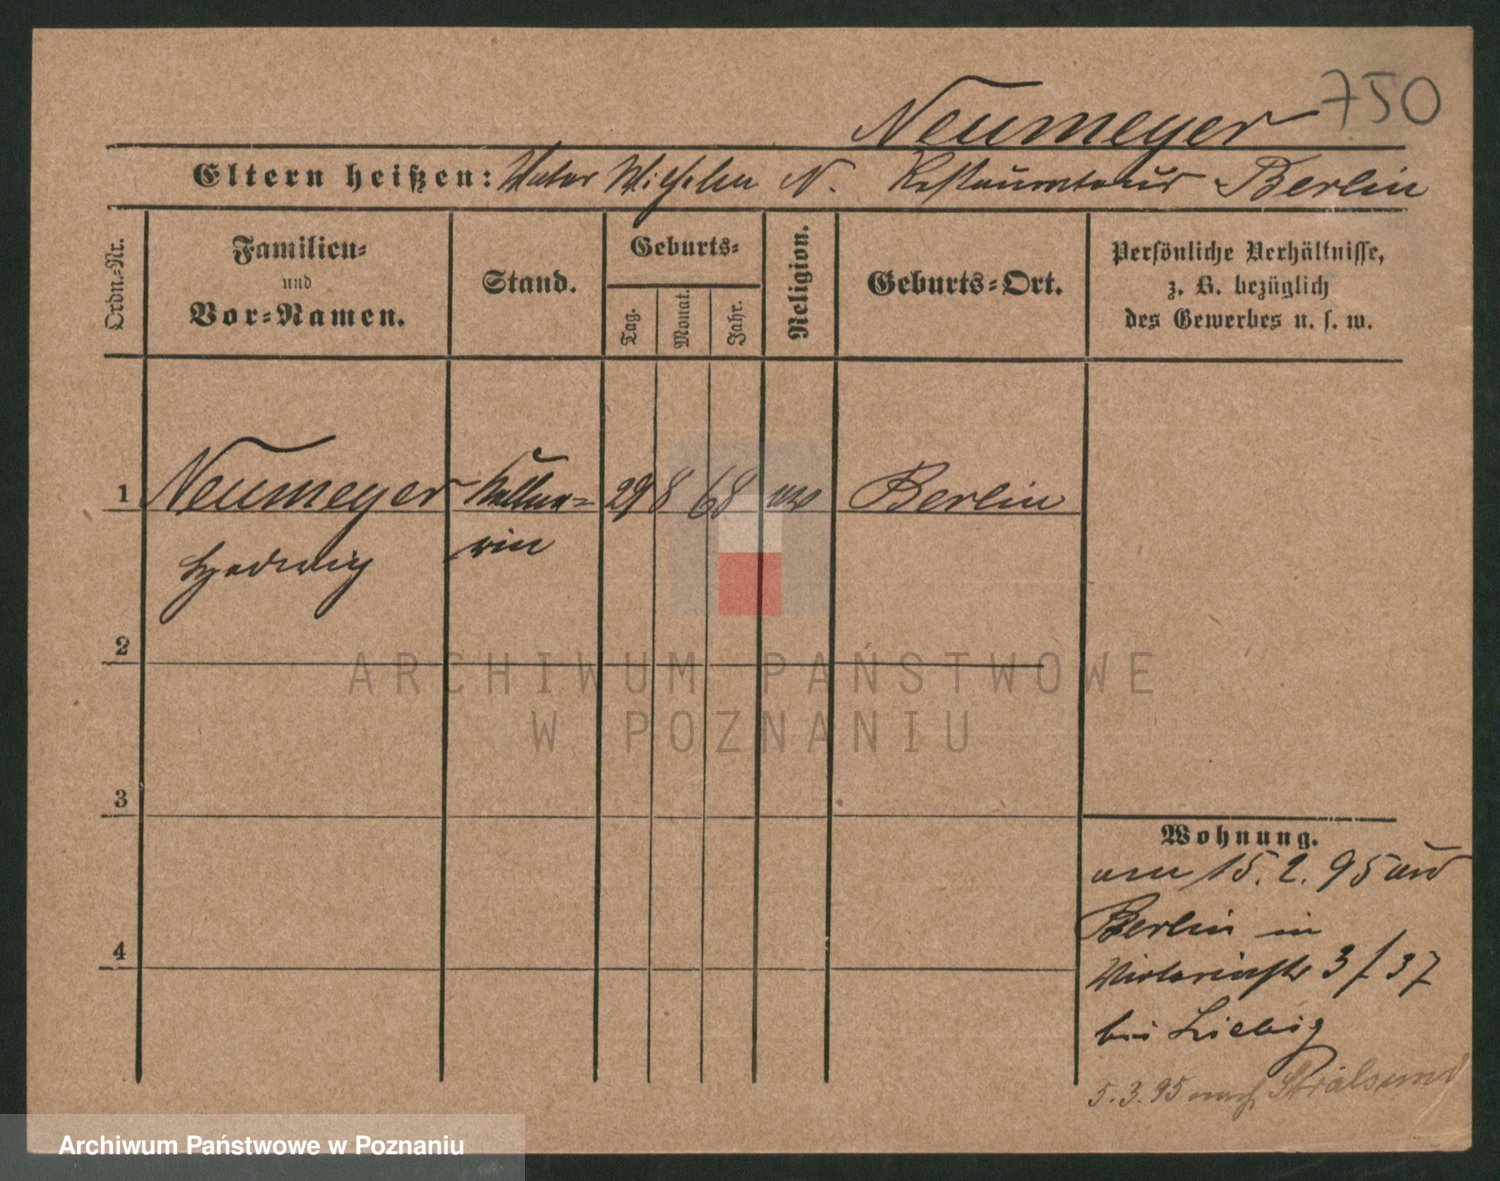 750
Neumeyer
Eltern heißen: Vater Wilhelm N. Restaurateur Berlin
Ordn.-Nr.
Familien-
und
Vor-Namen.
Stand.
Geburts-
Tag.
Monat.
Jahr.
Religion.
Geburts-Ort.
Persönliche Verhältnisse,
z. B. bezüglich
des Gewerbes u. s. w.
1 Neumeyer Kellne- 29 8 68 Berlin
Hedwig rin
2
ARCHIWUM PAŃSTWOWE
W POZNANIU
3
Wohnung.
am 15. 2. 95 aus
Berlin in
Victoriastr 3/37
bei Liebig
4
5. 3. 95 nach Stralsund
Archiwum Państwowe w Poznaniu